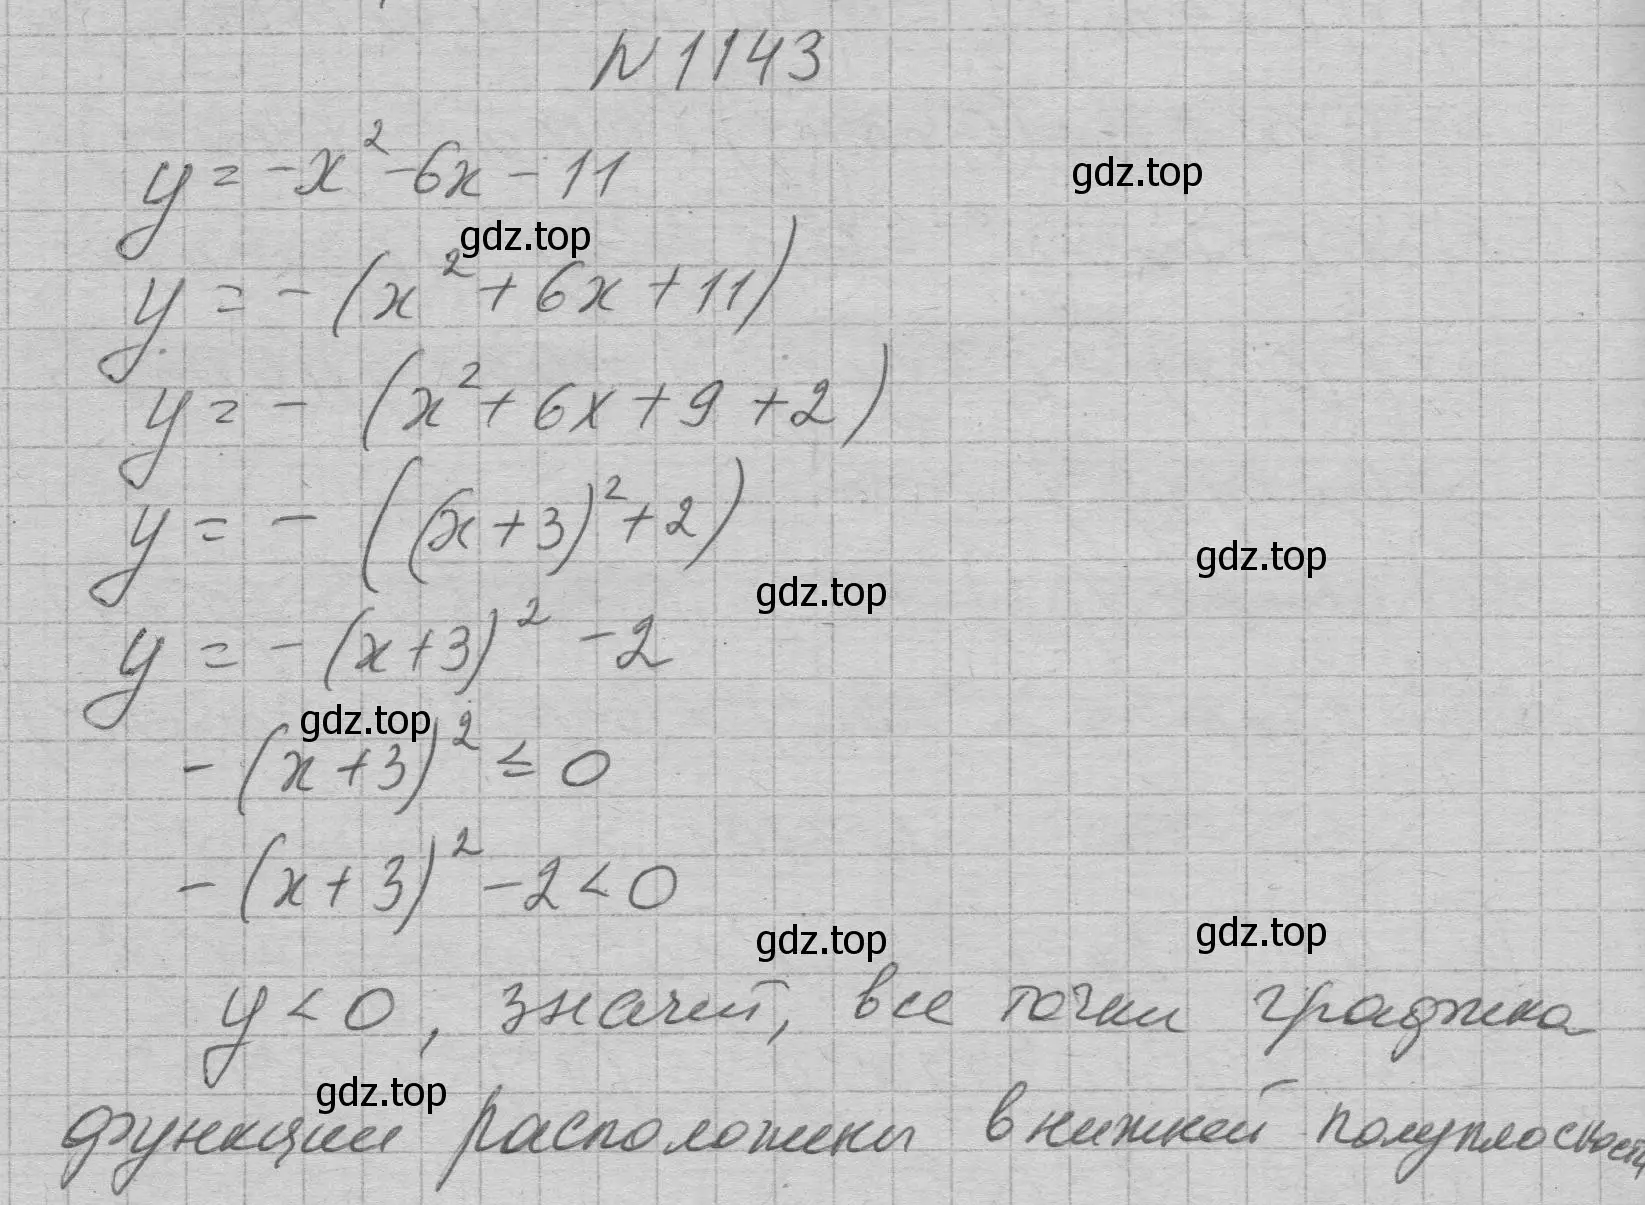 N 1143
y = -x² - 6x - 11
gdz.top
gdz.top
y = - (x² + 6x + 11)
y = - (x² + 6x + 9 + 2)
y = - ((x + 3)² + 2)
gdz.top
gdz.top
y = - (x + 3)² - 2
gdz.top
- (x + 3)² ≤ 0
- (x + 3)² - 2 < 0
gdz.top
gdz.top
y < 0, значит, все точки графика
gdz.top
функции расположены в нижней полуплоскости